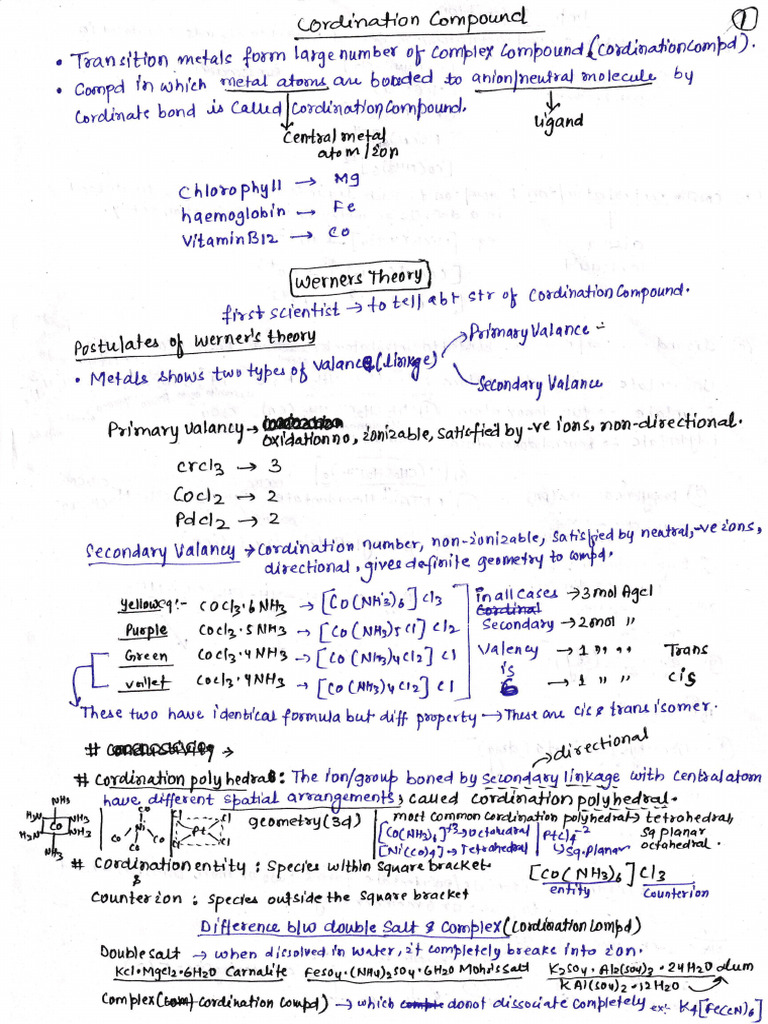 Cordination Compound
1
• Transition metals form large number of Complex Compound (Cordination Compd).
• Compd in which metal atoms are bonded to anion/neutral molecule by
Cordinate bond is called Cordination Compound.
Central metal
atom/ion
Ligand
Chlorophyll → Mg
haemoglobin → Fe
Vitamin B12 → CO
Werners Theory
first scientist → to tell abt str of Cordination Compound.
Postulates of Werner's theory
• Metals shows two types of valance (linkge)
Primary Valance :-
Secondary Valance
Primary valancy → oxidation no, ionizable, satisfied by -ve ions, non-directional.
CrCl3 → 3
CoCl2 → 2
PdCl2 → 2
Secondary Valancy → Cordination number, non-ionizable, Satisfied by neutral, -ve ions,
directional, gives definite geometry to compd.
yellow eg:- COCl3·6NH3 → [CO(NH3)6]Cl3 In all Cases → 3 mol Agcl
Purple COCl3·5NH3 → [CO(NH3)5Cl]Cl2 Secondary → 2 mol "
Green COCl3·4NH3 → [CO(NH3)4Cl2]Cl Valency → 1 " " Trans
Voilet COCl3·4NH3 → [CO(NH3)4Cl2]Cl is 6 → 1 " " cis
These two have identical formula but diff property → These are cis & trans isomer.
# Conductivity →
directional
# Cordination polyhedral: The ion/group boned by Secondary linkage with Central atom
have different spatial arrangements, called Cordination polyhedral.
NH3 H3N NH3 CO H3N NH3 NH3
CO Ni CO CO CO
Cl Cl Pt Cl Cl
geometry (3d)
most Common Cordination polyhedral → tetrahedral,
Sq planar
octahedral.
[CO(NH3)6]+3 → Octahedral
[Ni(CO)4] → Tetrahedral
PtCl4-2
↳ Sq. planar
# Cordination entity : Species within Square bracket
&
Counter ion : species outside the square bracket
[CO(NH3)6]Cl3
entity Counterion
Difference b/w double Salt & Complex (Cordination Compd)
Double salt → when dissolved in water, it completely breaks into ion.
KCl·MgCl2·6H2O Carnalite FeSO4·(NH4)2SO4·6H2O Mohr's Salt K2SO4·Al2(SO4)3·24H2O alum
KAl(SO4)2·12H2O
Complex (Cordination Compd) → which donot dissociate completely ex:- K4[Fe(CN)6]